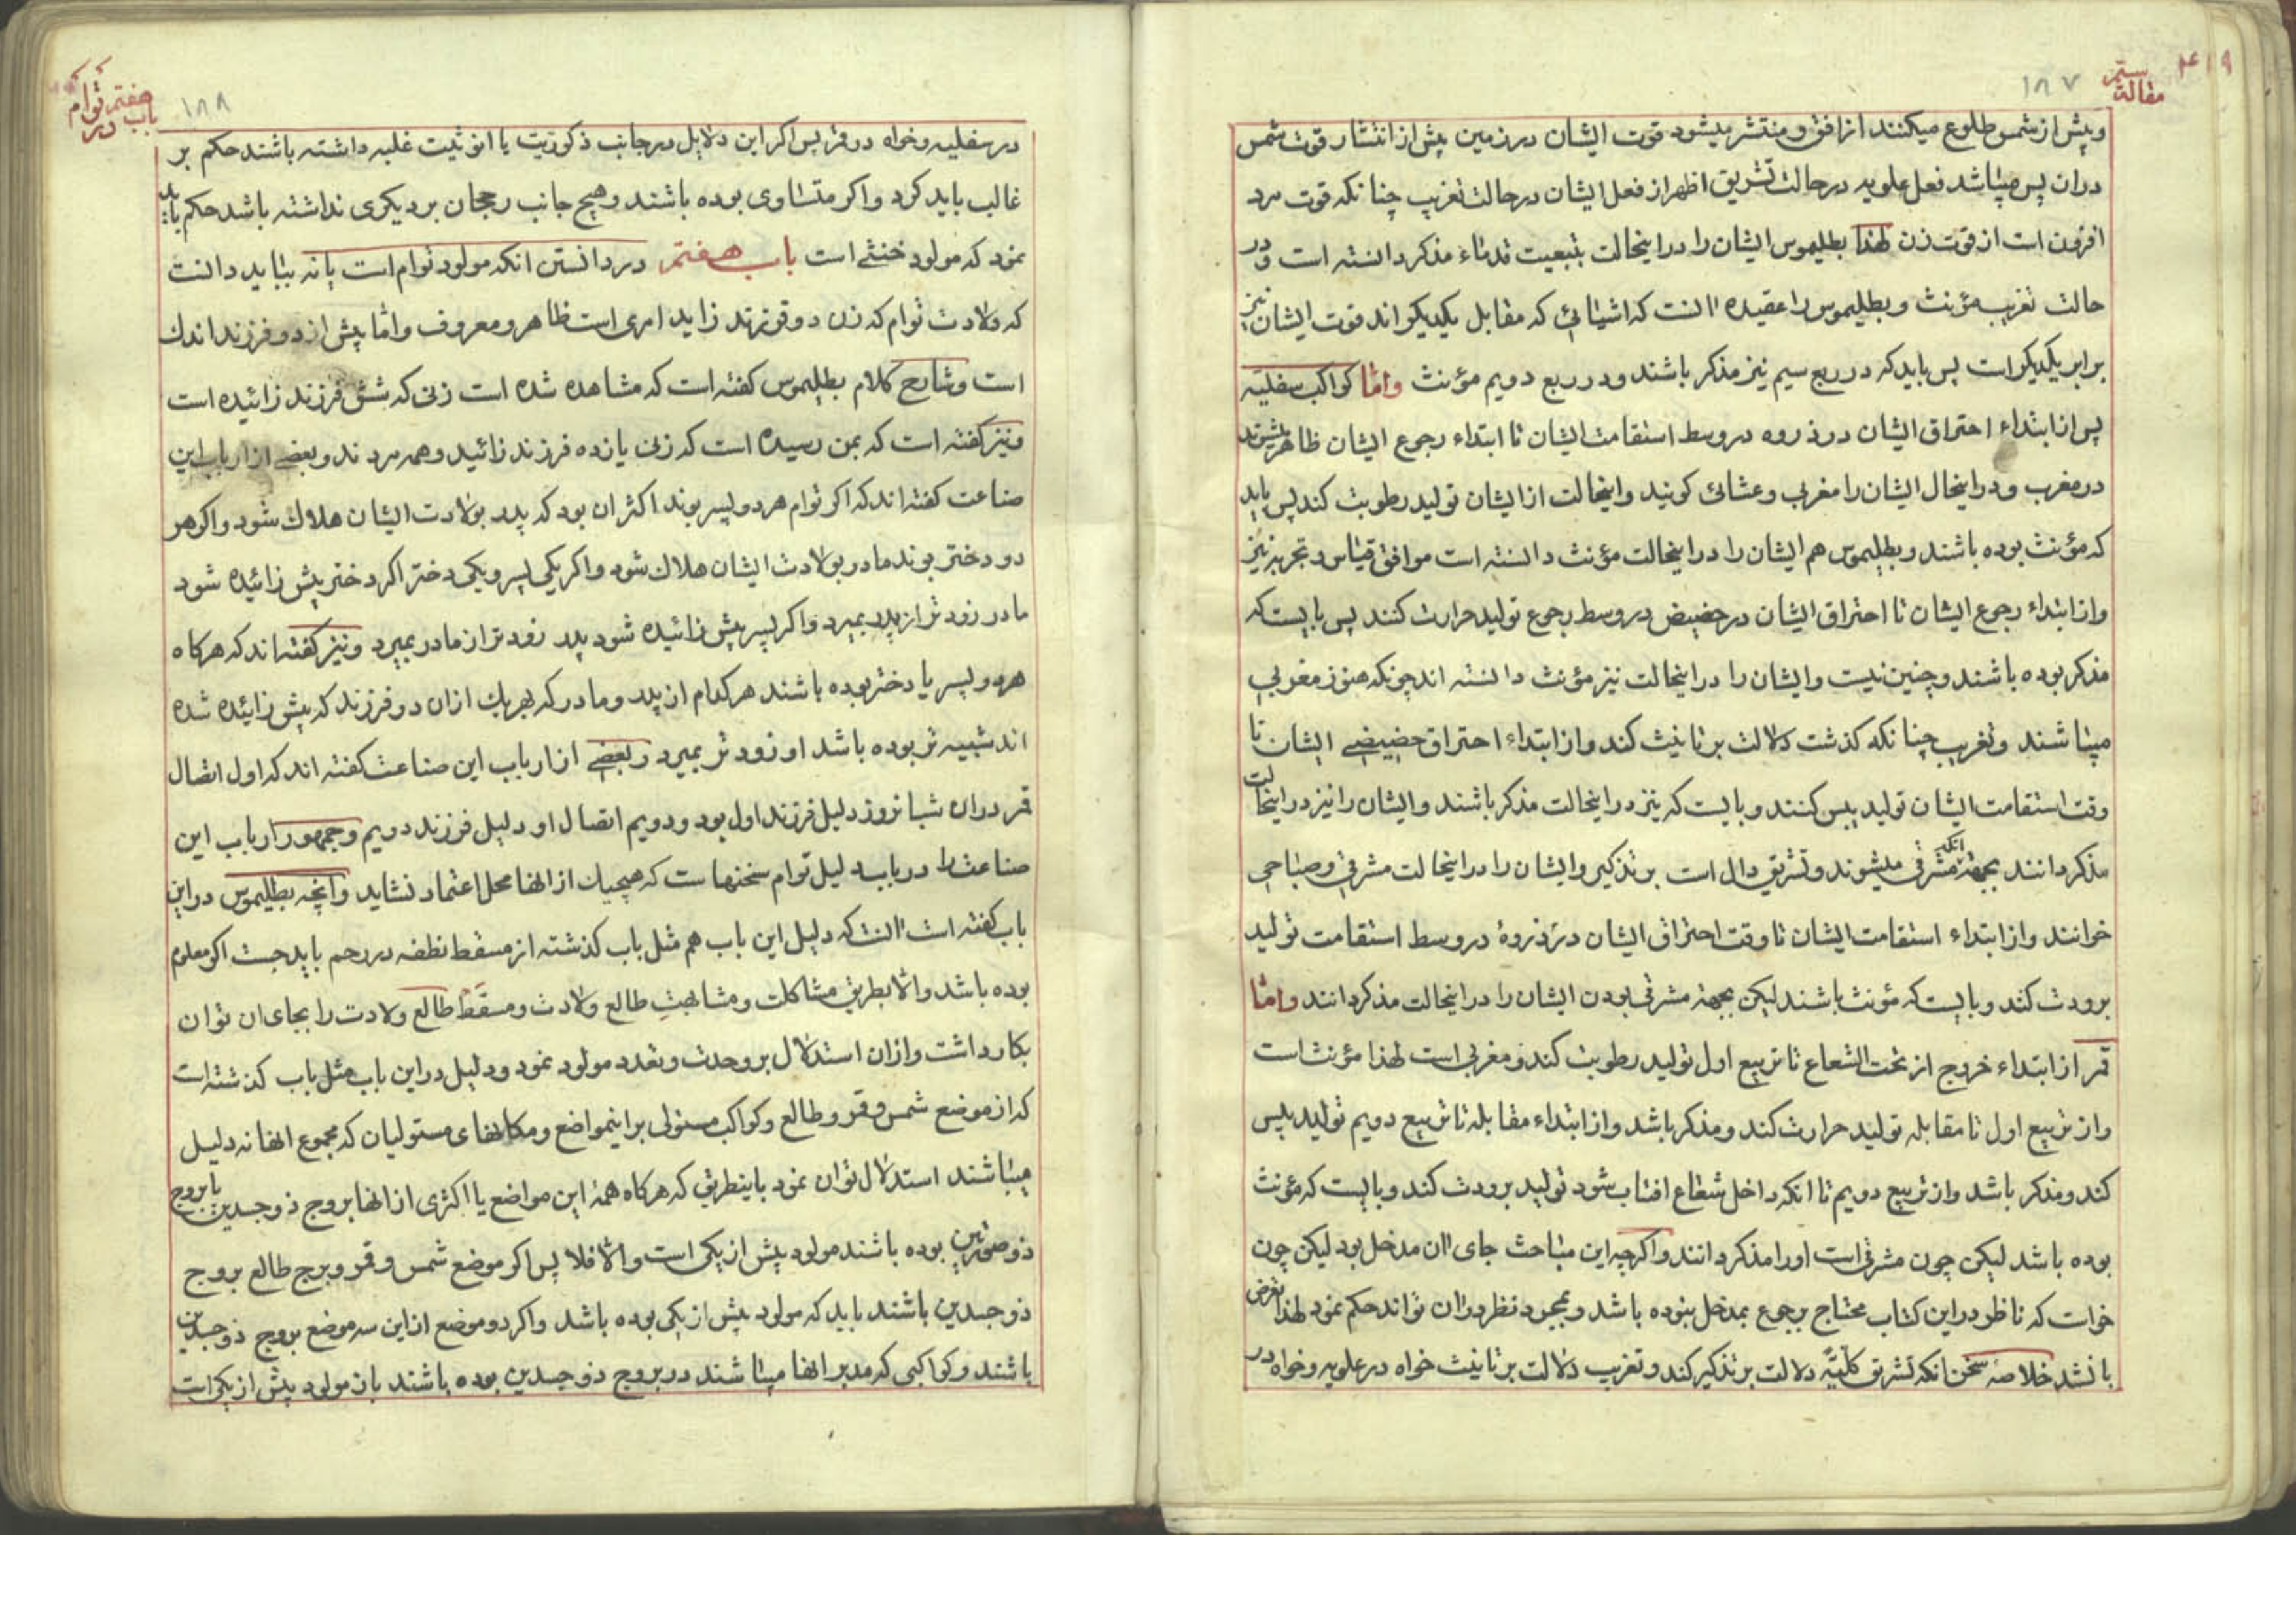 ۴۱۹
مقالهٔ سیّم
۱۸۷
و پیش از شمس طلوع میکنند از افق و منتشر میشود قوت ایشان در زمین پیش از انتشار قوت شمس
در ان پس میباشد فعل علویه در حالت تشریق اظهر از فعل ایشان در حالت تغریب چنانکه قوت مرد
افزون است از قوت زن لهذا بطلیموس ایشان را در اینحالت بتبعیت قدماء مذکر دانسته است و در
حالت تغریب مؤنث و بطلیموس را عقیده انست که اشیائی که مقابل یکدیکراند قوت ایشان نیز
برابر یکدیکر است پس باید که در ربع سیم نیز مذکر باشند و در ربع دویم مؤنث و امّا کواکب سفلیّه
پس از ابتداء احتراق ایشان در ذروه در وسط استقامت ایشان تا ابتداء رجوع ایشان ظاهر میشوند
در مغرب و در اینحال ایشان را مغربی و عشائی کویند و اینحالت از ایشان تولید رطوبت کند پس باید
که مؤنث بوده باشند و بطلیموس هم ایشان را در اینحالت مؤنث دانسته است موافق قیاس و تجربه نیز
و از ابتداء رجوع ایشان تا احتراق ایشان در حضیض در وسط رجوع تولید حرارت کنند پس بایست که
مذکر بوده باشند و چنین نیست و ایشان را در اینحالت نیز مؤنث دانسته اند چونکه هنوز مغربی
میباشند و تغریب چنانکه کذشت دلالت بر تانیث کند و از ابتداء احتراق حضیضی ایشان تا
وقت استقامت ایشان تولید یبس کنند و بایست که نیز در اینحالت مذکر باشند و ایشان را نیز در اینحالت
مذکر دانند بجهة انکه مشرقی میشوند و تشریق دال است بر تذکیر و ایشان را در اینحالت مشرقی و صباحی
خوانند و از ابتداء استقامت ایشان تا وقت احتراق ایشان در ذروهٔ در وسط استقامت تولید
برودت کند و بایست که مؤنث باشند لیکن بجهة مشرقی بودن ایشان را در اینحالت مذکر دانند و امّا
قمر از ابتداء خروج از تحت الشعاع تا تربیع اول تولید رطوبت کند و مغربی است لهذا مؤنث است
و از تربیع اول تا مقابله تولید حرارت کند و مذکر باشد و از ابتداء مقابله تا تربیع دویم تولید یبس
کند و مذکر باشد و از تربیع دویم تا انکه داخل شعاع افتاب شود تولید برودت کند و بایست که مؤنث
بوده باشد لیکن چون مشرقی است او را مذکر دانند و اکرچه این مباحث جای ان مدخل بود لیکن چون
خواست که ناظر در این کتاب محتاج برجوع بمدخل نبوده باشد و بمجرد نظر در ان تواند حکم نمود لهذا متعرض
بانشد خلاصهٔ سخن انکه تشریق کلیّهً دلالت بر تذکیر کند و تغریب دلالت بر تانیث خواه در علویه و خواه در
باب هفتم در توام
۱۸۸
در سفلیه و خواه در قمر پس اکر این دلایل در جانب ذکوریت یا انوثیت غلبه داشته باشند حکم بر
غالب باید کرد و اکر متساوی بوده باشند و هیچ جانب رجحان بر دیکری نداشته باشد حکم باید
نمود که مولود خنثی است باب هفتم در دانستن انکه مولود توام است یا نه بباید دانست
که ولادت توام که زن دو فرزند زاید امری است ظاهر و معروف و امّا بیش از دو فرزند اندک
است و شارح کلام بطلیموس کفته است که مشاهده شده است زنی که شش فرزند زائیده است
و نیز کفته است که بمن رسیده است که زنی یازده فرزند زائید و همه مردند و بعضی از ارباب این
صناعت کفته اند که اکر توام هر دو پسر بوند اکثر ان بود که پدر بولادت ایشان هلاک شود و اکر هر
دو دختر بوند مادر بولادت ایشان هلاک شود و اکر یکی پسر و یکی دختر اکر دختر پیش زائیده شود
مادر زودتر از پدر بمیرد و اکر پسر پیش زائیده شود پدر زودتر از مادر بمیرد و نیز کفته اند که هرکاه
هر دو پسر یا دختر بوده باشند هر کدام از پدر و مادر که بهر یک از ان دو فرزند که پیش زائیده شده
اند شبیه تر بوده باشد او زودتر بمیرد و بعضی از ارباب این صناعت کفته اند که اول اتصال
قمر در ان شبانروز دلیل فرزند اول بود و دویم اتصال او دلیل فرزند دویم و جمهور ارباب این
صناعت را در باب دلیل توام سخنهاست که هیچیک از انها محل اعتماد نشاید و آنچه بطلیموس در این
باب کفته است انست که دلیل این باب هم مثل باب کذشته از مسقط نطفه در رحم باید جست اکر معلوم
بوده باشد و الا بطریق مشاکلت و مشابهت طالع ولادت و مسقط طالع ولادت را بجای ان توان
بکار داشت و از ان استدلال بر وحدت و تعدد مولود نمود و دلیل در این باب مثل باب کذشته است
که از موضع شمس و قمر و طالع و کواکب مستولی بر اینمواضع و مکانهای مستولیان که مجموع انها نه دلیل
میباشند استدلال توان نمود باینطریق که هرکاه همهٔ این مواضع یا اکثری از انها بروج ذوجسدین یا بروج
ذوصورتین بوده باشند مولود بیش از یکی است و الّا فلا پس اکر موضع شمس و قمر و برج طالع بروج
ذوجسدین باشند باید که مولود بیش از یکی بوده باشد و اکر دو موضع از این سه موضع بروج ذوجسدین
باشند و کواکبی که مدبر انها میباشند در بروج ذوجسدین بوده باشند باز مولود بیش از یکی است